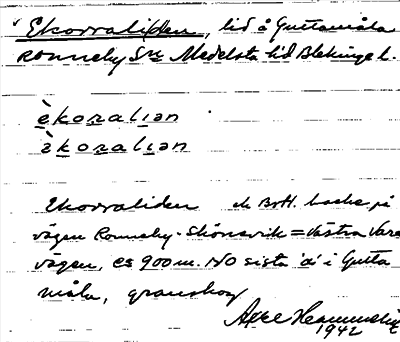 Ekorraliden, lid å Guttamåla
Ronneby Sn Medelsta hd Blekinge l.
èkoralıən
èkoralıən
Ekorraliden backe på
vägen Ronneby - Skönevik = Västra Vara
vägen, ca 900 m. NO sista 'a' i Gutta
måla, granskog
1942